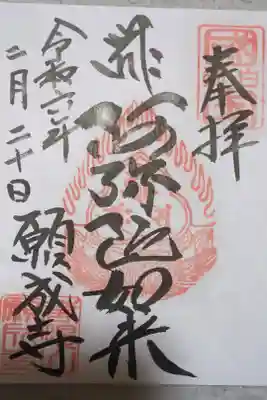 奉拝
阿弥陀如来
令和六年
二月二十日
願成寺